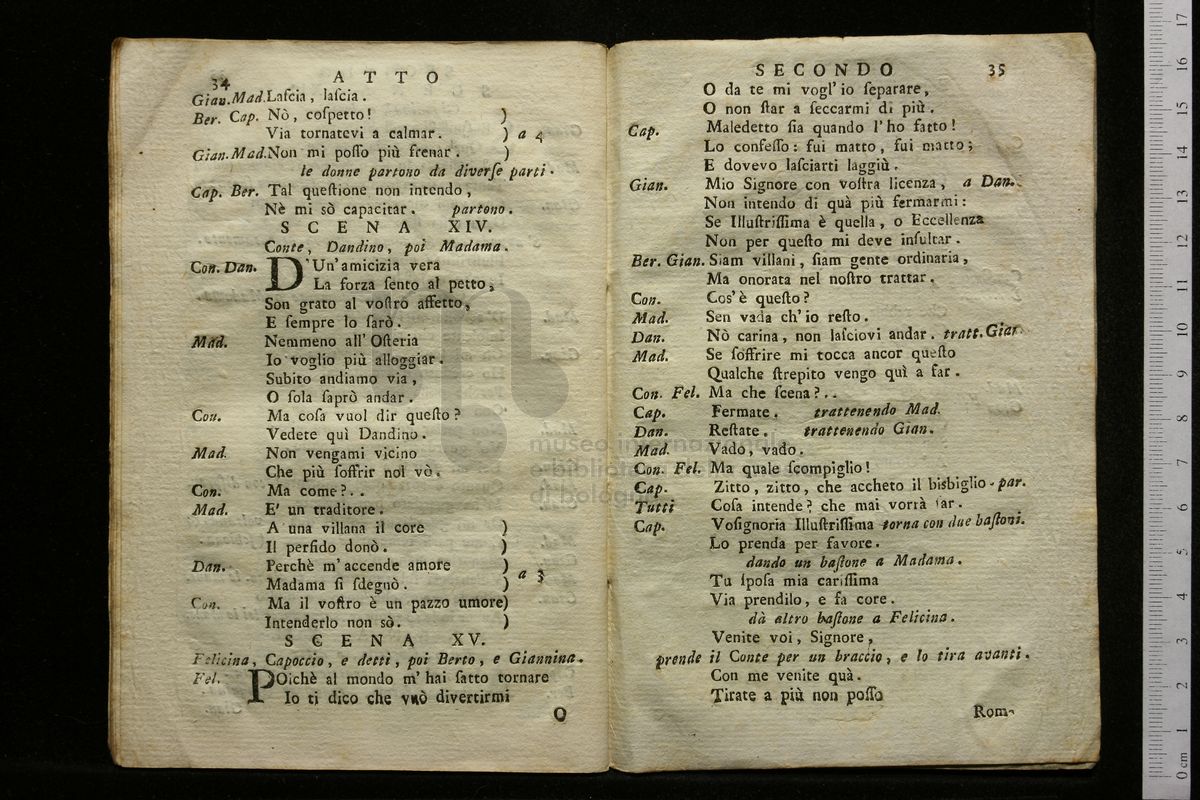 34 ATTO
Gian.Mad. Laſcia, laſcia.
Ber. Cap. Nò, coſpetto! )
Via tornatevi a calmar. ) a 4
Gian.Mad. Non mi poſſo più frenar. )
le donne partono da diverſe parti.
Cap. Ber. Tal queſtione non intendo,
Nè mi sò capacitar. partono.
SCENA XIV.
Conte, Dandino, poi Madama.
Con. Dan. D'Un'amicizia vera
La forza ſento al petto,
Son grato al voſtro affetto,
E ſempre lo ſarò.
Mad. Nemmeno all' Oſteria
Io voglio più alloggiar.
Subito andiamo via,
O ſola ſaprò andar.
Con. Ma coſa vuol dir queſto?
Vedete quì Dandino.
Mad. Non vengami vicino
Che più ſoffrir nol vò.
Con. Ma come?..
Mad. E' un traditore.
A una villana il core )
Il perfido donò. )
Dan. Perchè m'accende amore ) a 3
Madama ſi ſdegnò. )
Con. Ma il voſtro è un pazzo umore)
Intenderlo non sò. )
SCENA XV.
Felicina, Capoccio, e detti, poi Berto, e Giannina.
Fel. POichè al mondo m' hai fatto tornare
Io ti dico che vuò divertirmi
O
SECONDO 35
O da te mi vogl' io ſeparare,
O non ſtar a ſeccarmi di più.
Cap. Maledetto ſia quando l' ho fatto!
Lo confeſſo: fui matto, fui matto;
E dovevo laſciarti laggiù.
Gian. Mio Signore con voſtra licenza, a Dan.
Non intendo di quà più fermarmi:
Se Illuſtriſſima è quella, o Eccellenza
Non per queſto mi deve inſultar.
Ber. Gian. Siam villani, ſiam gente ordinaria,
Ma onorata nel noſtro trattar.
Con. Cos' è queſto?
Mad. Sen vada ch' io reſto.
Dan. Nò carina, non laſciovi andar. tratt. Gian.
Mad. Se ſoffrire mi tocca ancor queſto
Qualche ſtrepito vengo quì a far.
Con. Fel. Ma che ſcena?..
Cap. Fermate. trattenendo Mad.
Dan. Reſtate. trattenendo Gian.
Mad. Vado, vado.
Con. Fel. Ma quale ſcompiglio!
Cap. Zitto, zitto, che accheto il bisbiglio. par.
Tutti Coſa intende? che mai vorrà far.
Cap. Voſignoria Illuſtriſſima torna con due baſtoni.
Lo prenda per favore.
dando un baſtone a Madama.
Tu ſpoſa mia cariſſima
Via prendilo, e fa core.
dà altro baſtone a Felicina.
Venite voi, Signore,
prende il Conte per un braccio, e lo tira avanti.
Con me venite quà.
Tirate a più non poſſo
Rom-
museo internazionale
e biblioteca della
di bologna
0 cm 1 2 3 4 5 6 7 8 9 10 11 12 13 14 15 16 17